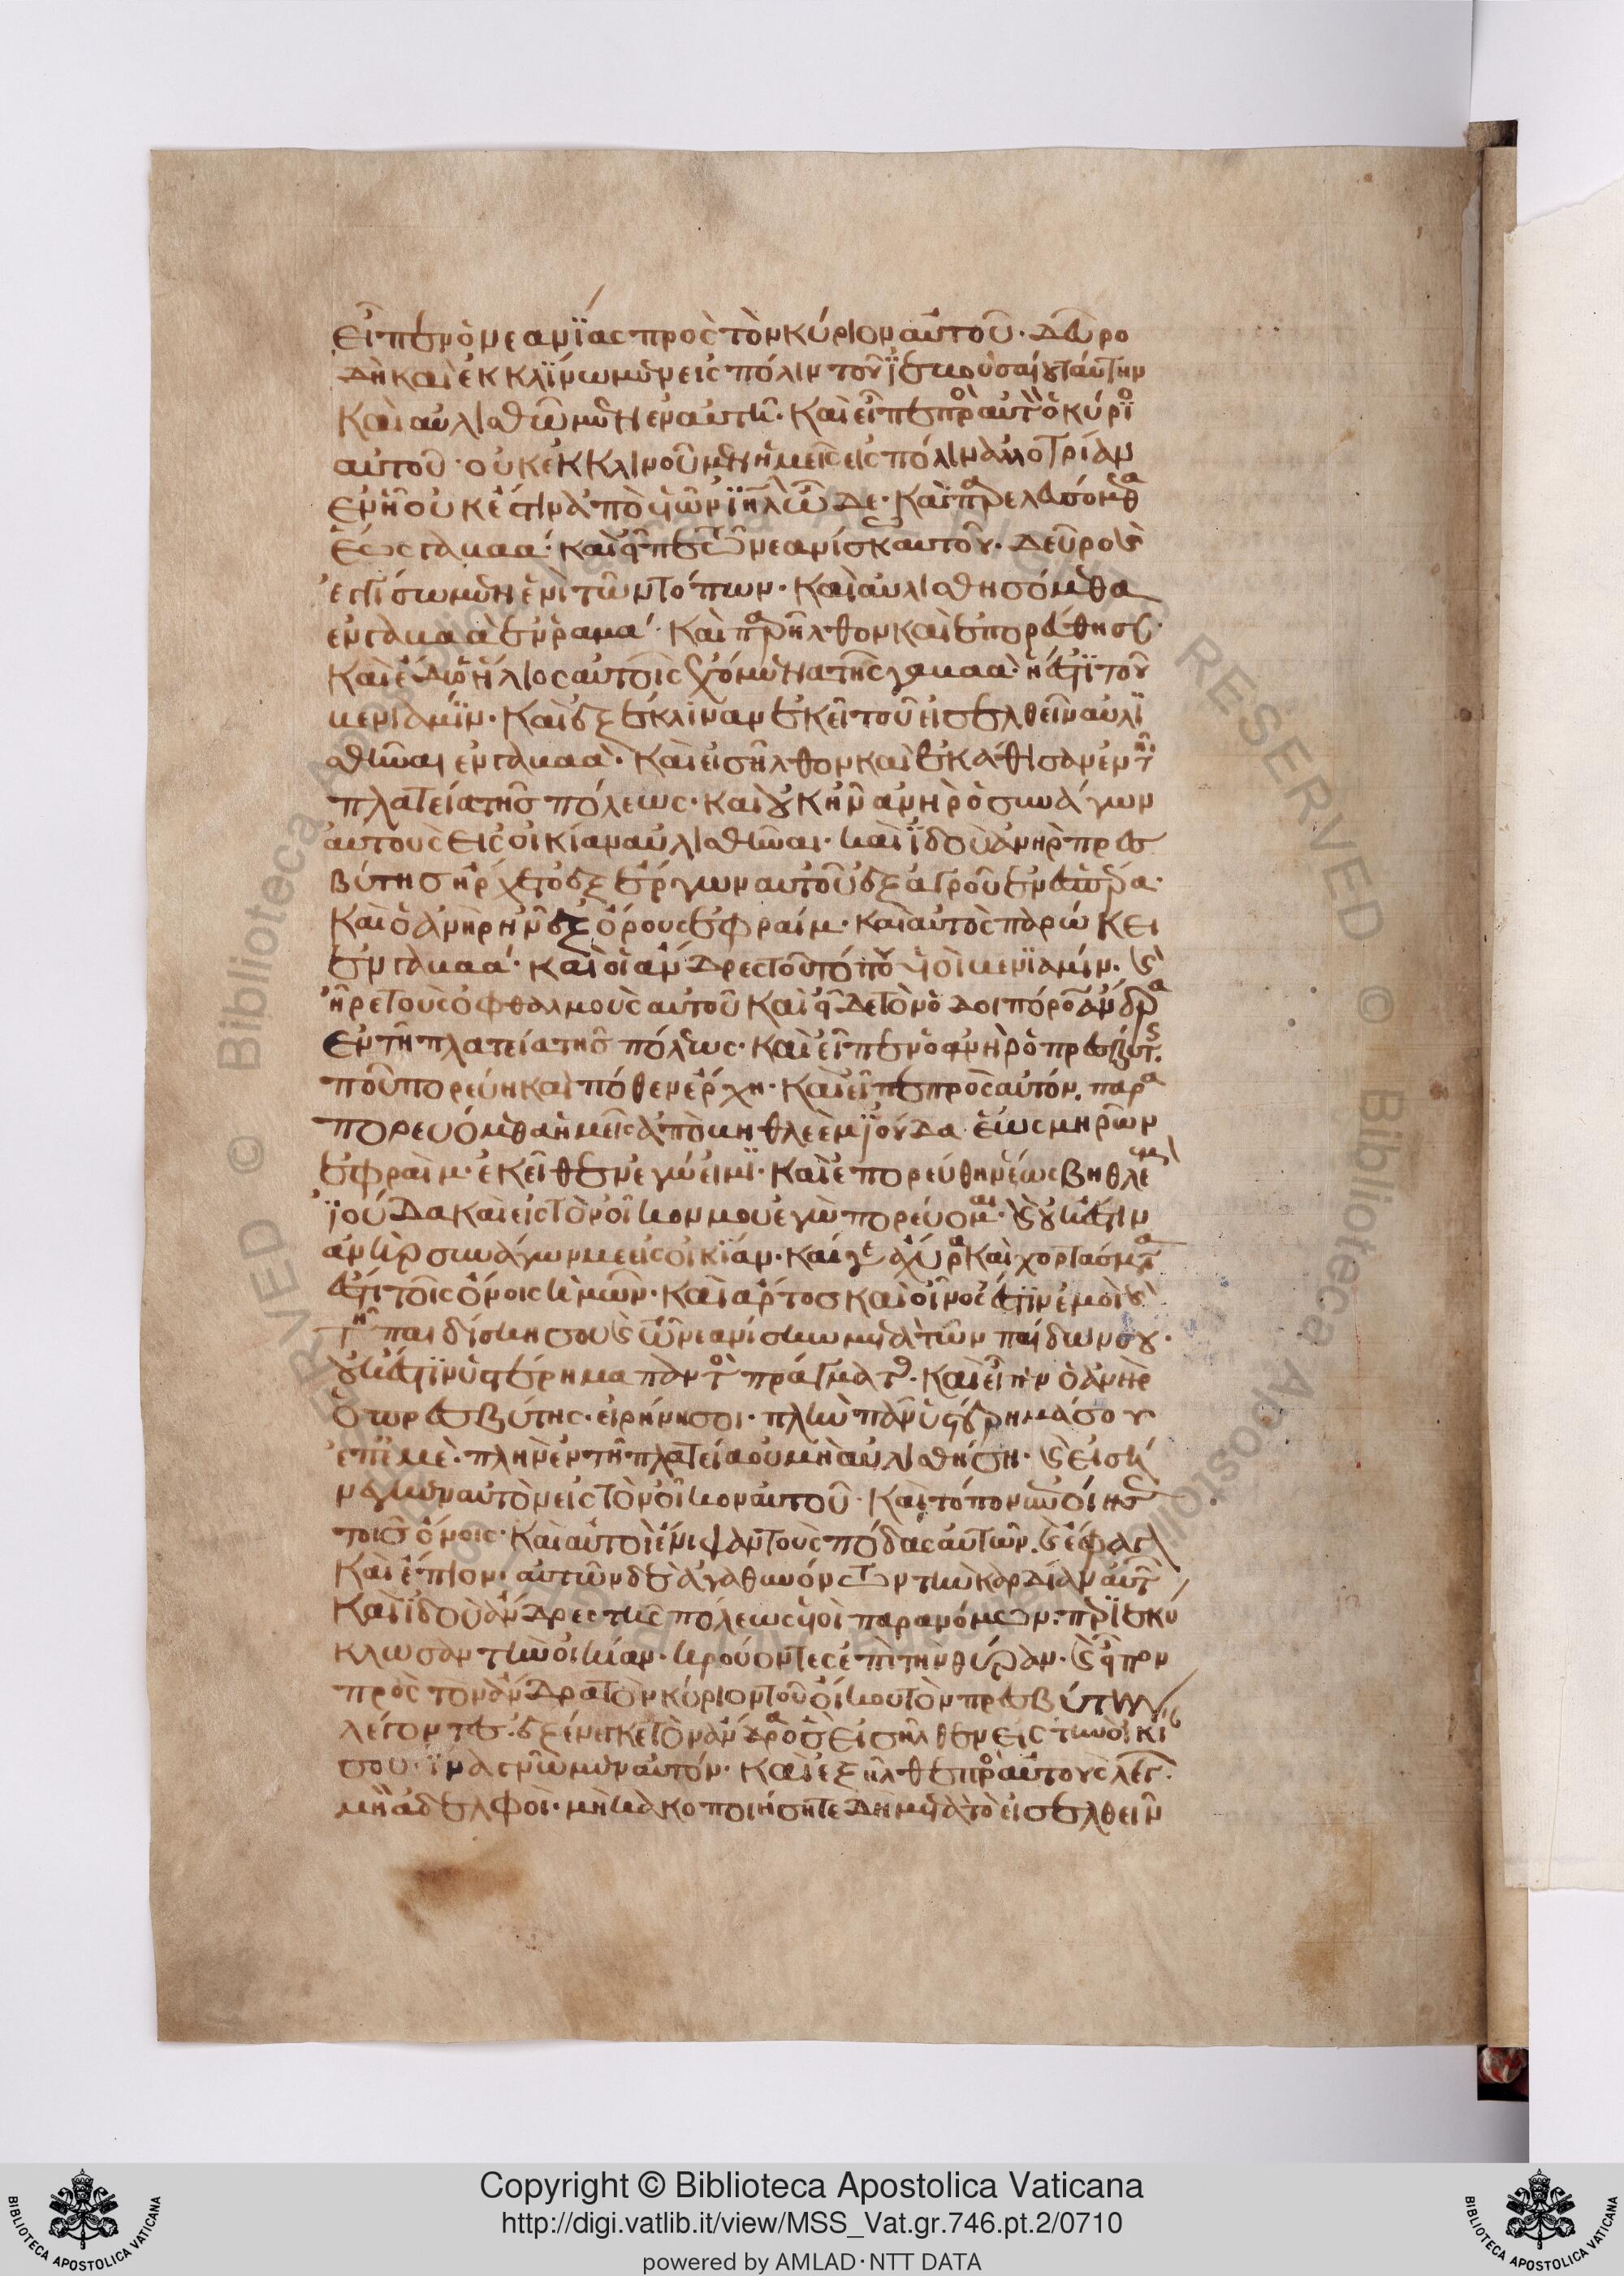 εἶπεν ὁ νεανίας πρὸς τὸν κύριον αὐτοῦ· δεῦρο
δὴ καὶ ἐκκλίνωμεν εἰς πόλιν τοῦ ϊεβουσαίου ταύτην
καὶ αὐλισθῶμεν ἐν αὐτῆ. καὶ εἶπε πρὸ αὐτὸ ὁ κύριο
αὐτοῦ· οὐκ ἐκκλινοῦμεν ἡμεῖς εἰς πόλιν ἀλλοτρίαν
ἐν ἧ οὐκ ἔστιν ἀπὸ υἱῶν ϊηλ ὧδε· καὶ παρελευσόμεθα
ἕως γαβαά· καὶ εἶπε τῶ νεανίσκω αὐτοῦ. δεῦρο καὶ
ἐγγίσωμεν ἑνὶ τῶν τόπων· καὶ αὐλισθησόμεθα
ἐν γαβαὰ ἐν ραμά· καὶ παρῆλθον καὶ ἐπορεύθησαν·
καὶ ἔδυ ὁ ἥλιος αὐτοῖς ἐχόμενα τῆς γαβαὰ· ἥ ἐστι τοῦ
βενιαμίν· καὶ ἐξέκλιναν ἐκεῖ τοῦ εἰσελθεῖν αὐλι
σθῆναι ἐν γαβαὰ· καὶ εἰσῆλθον καὶ ἐκάθισαν ἐν τῆ
πλατεία τῆς πόλεως· καὶ οὐκ ἦν ἀνὴρ ὁ συνάγων
αὐτοὺς εἰς οἰκίαν αὐλισθῆναι· καὶ ϊδοὺ ἀνὴρ πρεσ
βύτης ἤρχετο ἐξ ἔργων αὐτοῦ ἐξ ἀγροῦ ἐν ἑσπέρα·
καὶ ὁ ἀνὴρ ἦν ἐξ ὄρους ἐφραίμ· καὶ αὐτὸς παρώκει
ἐν γαβαά· καὶ οἱ ἄνδρες τοῦ τόπου υἱοὶ βενϊαμίν. καὶ
ἦρε τοὺς ὀφθαλμοὺς αὐτοῦ καὶ εἶδε τὸν ὁδοιπόρον ἄνδρα
ἐν τῆ πλατεία τῆς πόλεως· καὶ εἶπεν ὁ ἀνὴρ ὁ πρεσβύτης.
ποῦ πορεύη καὶ πόθεν ἔρχη· καὶ εἶπε πρὸς αὐτόν. παρα
πορευόμεθα ἡμεῖς ἀπὸ βηθλεὲμ ϊούδα ἕως μηρῶν
ἐφραίμ· ἐκεῖθεν ἐγώ εἰμι· καὶ ἐπορεύθην ἕως βηθλεὲμ
ϊούδα καὶ εἰς τὸν οἶκον μου ἐγὼ πορεύομαι· καὶ οὐκ ἔστιν
ἀνὴρ συνάγων με εἰς οἰκίαν· καί γε ἄχυρα καὶ χορτάσματα
ἐστὶ τοῖς ὄνοις ἡμῶν· καὶ ἄρτος καὶ οἶνος ἐστὶν ἐμοὶ καὶ
τῆ παιδίσκη σου καὶ τῶ νεανίσκω μετὰ τῶν παίδων σου.
οὐκ ἔστιν ὑστέρημα παντὸς πράγματος. καὶ εἶπεν ὁ ἀνὴρ
ὁ πρεσβύτης· εἰρήνη σοι· πλὴν πᾶν ὑστέρημά σου
ἐπ' ἐμὲ· πλὴν ἐν τῆ πλατεία οὐ μὴ αὐλισθήση· καὶ εἰσή
νεγκεν αὐτὸν εἰς τὸν οἶκον αὐτοῦ· καὶ τόπον ἐποίησε
τοῖς ὄνοις· καὶ αὐτοὶ ἐνίψαντο τοὺς πόδας αὐτῶν. καὶ ἔφαγον
καὶ ἔπιον· αὐτῶν δὲ ἀγαθυνόντων τὴν καρδίαν αὐτῶν
καὶ ϊδοὺ ἄνδρες τῆς πόλεως υἱοὶ παρανόμων. περιεκύ
κλωσαν τὴν οἰκίαν· κρούοντες ἐπὶ τὴν θύραν. καὶ εἶπον
πρὸς τὸν ἄνδρα τὸν κύριον τοῦ οἴκου τὸν πρεσβύτην
λέγοντες. ἐξένεγκε τὸν ἄνδρα ὃς εἰσῆλθεν εἰς τὴν οἰκίαν
σου· ϊνα γνῶμεν αὐτόν· καὶ ἐξῆλθε πρὸς αὐτοὺς λέγων.
μὴ ἀδελφοὶ· μὴ κακοποιήσητε δὴ μετὰ τὸ εἰσελθεῖν
Copyright © Biblioteca Apostolica Vaticana
http://digi.vatlib.it/view/MSS_Vat.gr.746.pt.2/0710
powered by AMLAD·NTT DATA